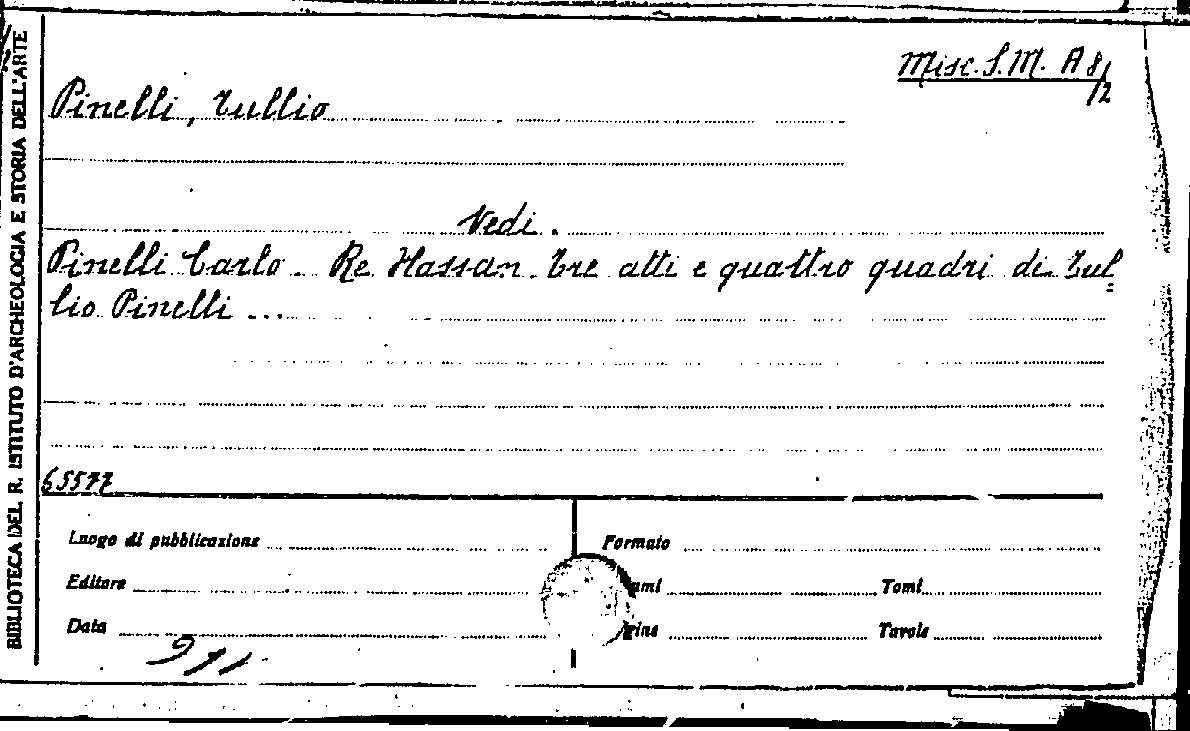 BIBLIOTECA DEL R. ISTITUTO D'ARCHEOLOGIA E STORIA DELL'ARTE
Misc. S. M. A 8/
/2
Pinelli, Tullio
Vedi.
Pinelli Carlo. Re Hassan. Tre atti e quattro quadri di Tul=
lio Pinelli ...
65577
Luogo di pubblicazione
Formato
Editore
umi
Tomi
Data
gine
Tavole